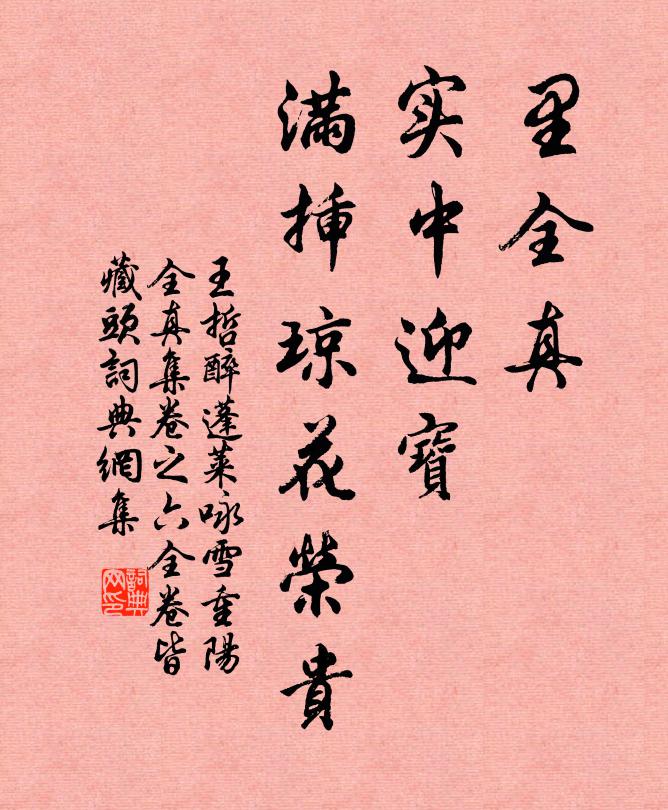 里全真
实中迎寶
满插琼花榮貴
王哲醉蓬萊咏雪重陽
全真集卷之六全卷皆
藏頭詞典網集
詞典
网印